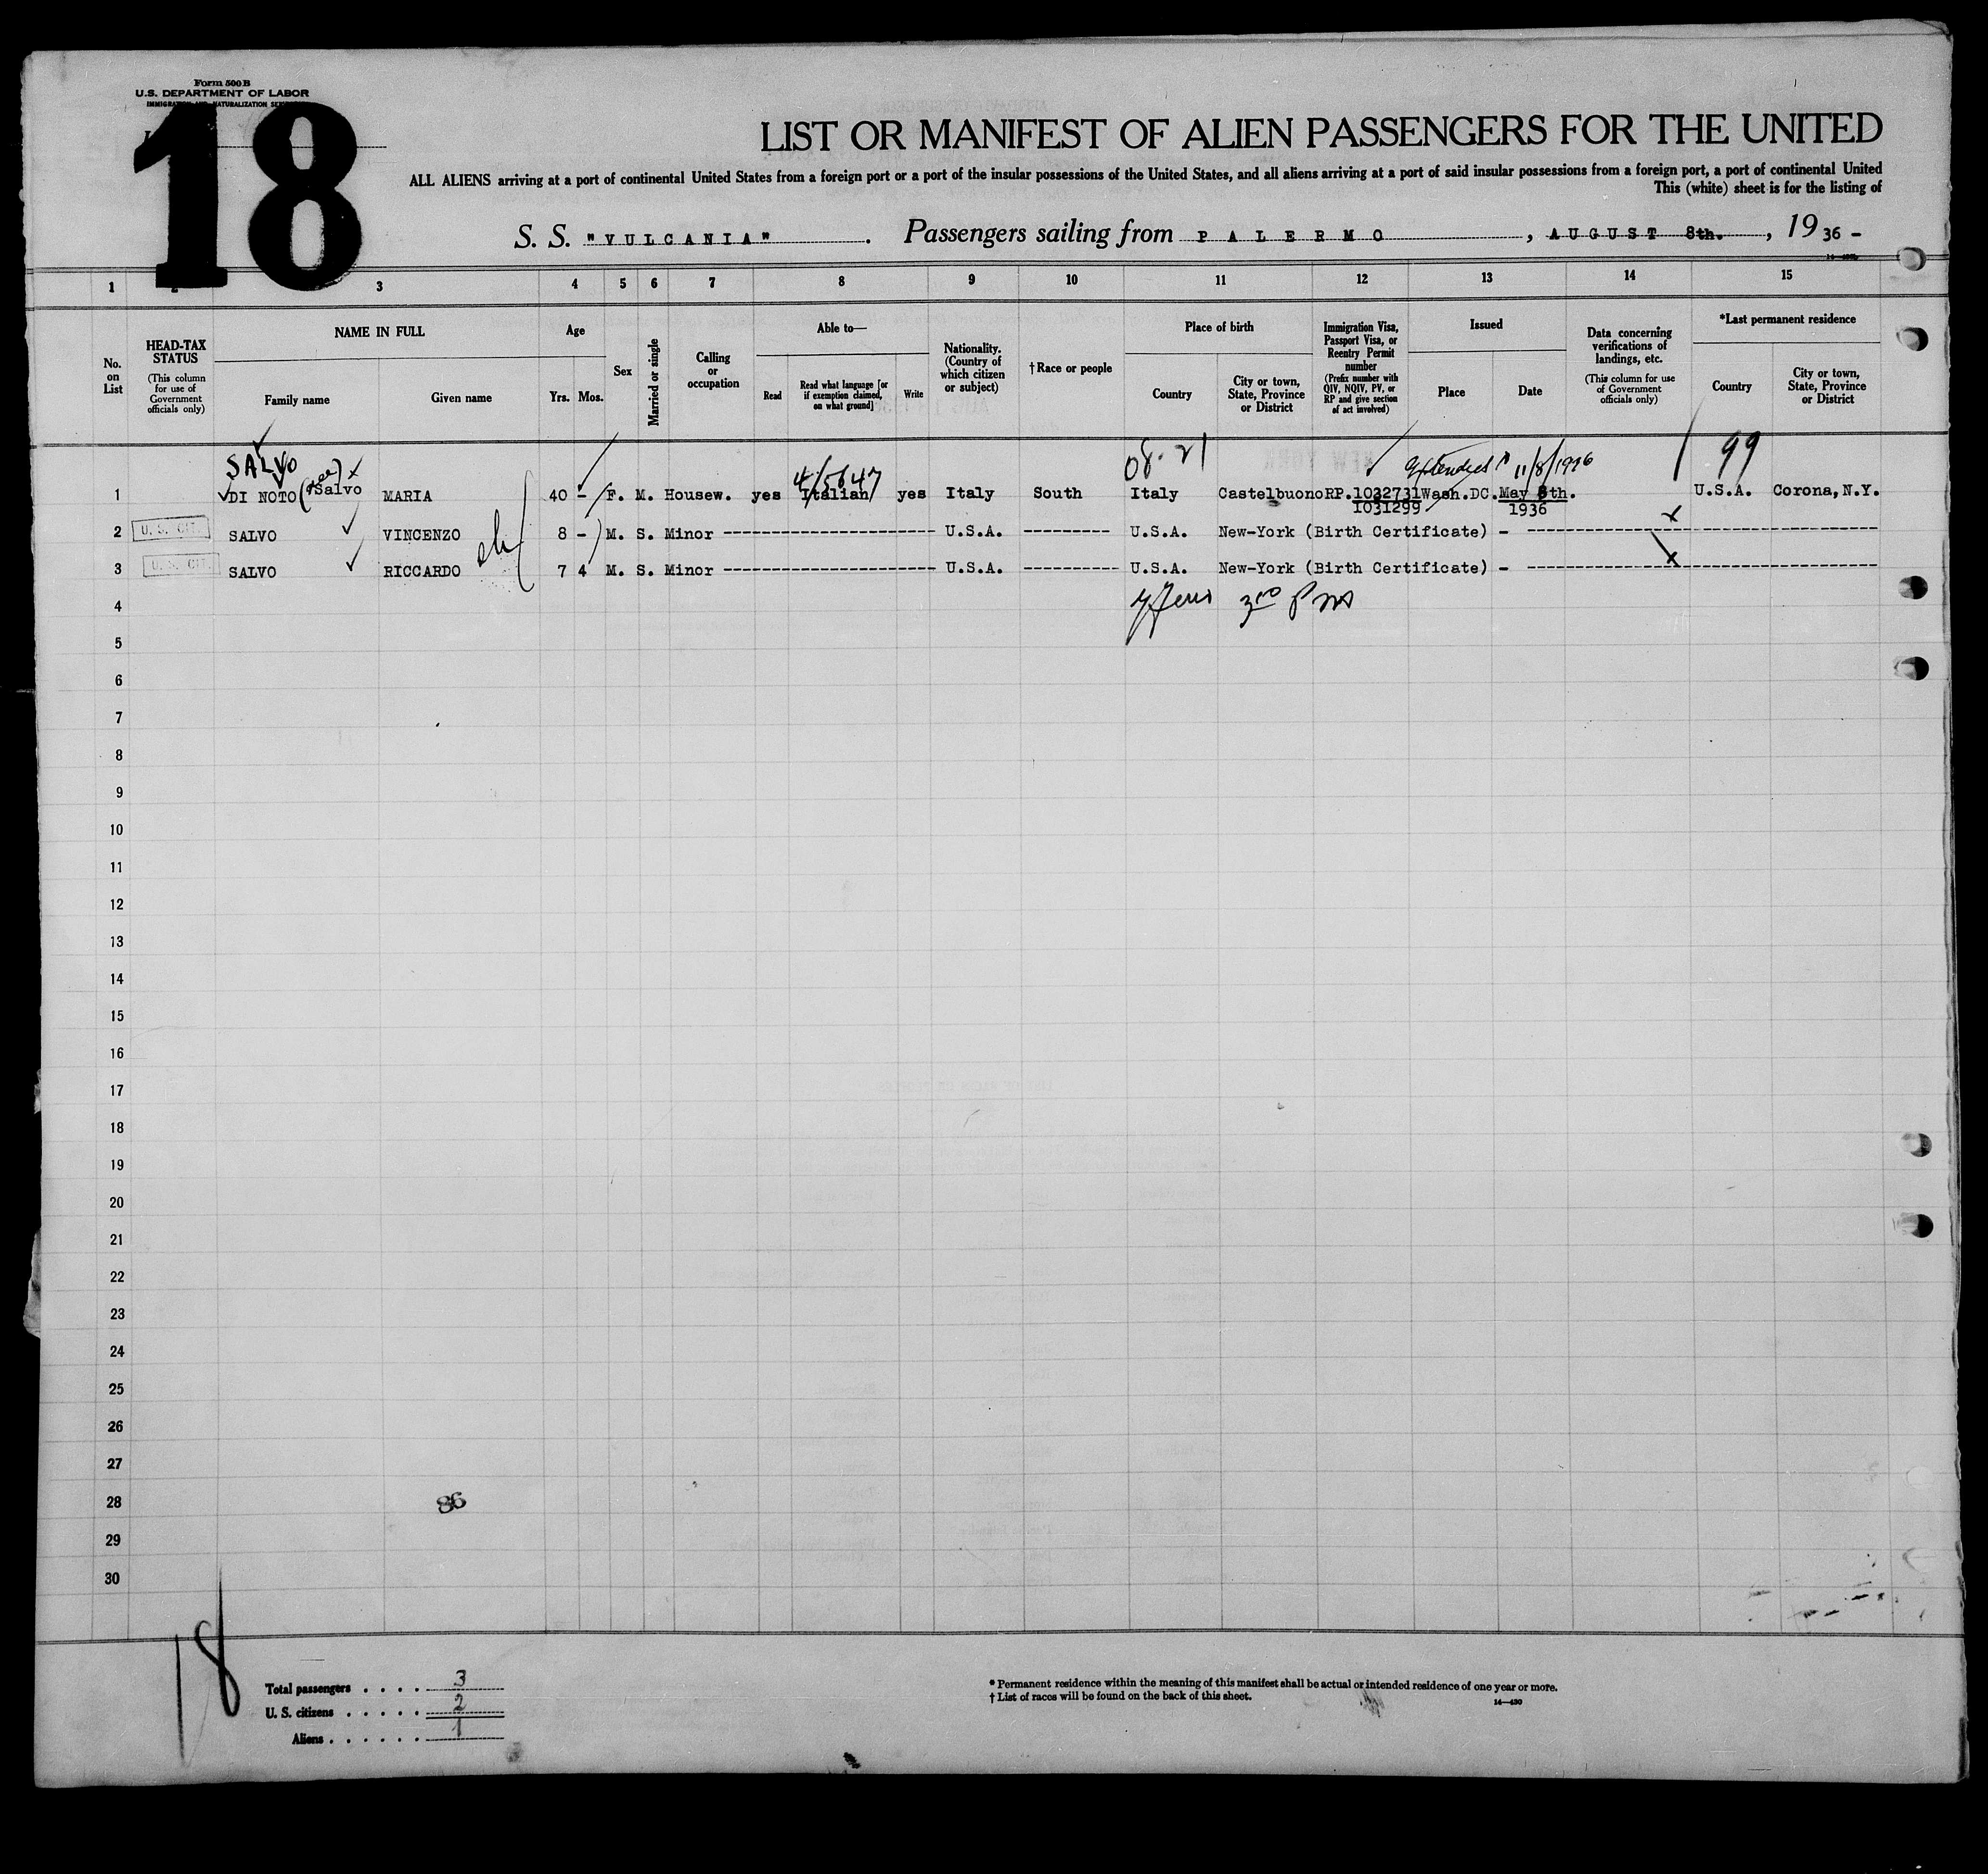 Form 500 B
U.S. DEPARTMENT OF LABOR
IMMIGRATION AND NATURALIZATION
18
LIST OR MANIFEST OF ALIEN PASSENGERS FOR THE UNITED
ALL ALIENS arriving at a port of continental United States from a foreign port or a port of the insular possessions of the United States, and all aliens arriving at a port of said insular possessions from a foreign port, a port of continental United
This (white) sheet is for the listing of
S. S. "VULCANIA" . Passengers sailing from PALERMO , AUGUST 8th. , 19 36 -
1 2 3 4 5 6 7 8 9 10 11 12 13 14 15
No. on List
HEAD-TAX STATUS
(This column for use of Government officials only)
NAME IN FULL
Family name Given name
Age
Yrs. Mos.
Sex
Married or single
Calling or occupation
Able to—
Read Read what language [or if exemption claimed, on what ground] Write
Nationality. (Country of which citizen or subject)
†Race or people
Place of birth
Country City or town, State, Province or District
Immigration Visa, Passport Visa, or Reentry Permit number
(Prefix number with QIV, NQIV, PV, or RP and give section of act involved)
Issued
Place Date
Data concerning verifications of landings, etc.
(This column for use of Government officials only)
*Last permanent residence
Country City or town, State, Province or District
SALVO 4/5647 08-21 11/8/1936 99
1 DI NOTO (Salvo MARIA 40 - F. M. Housew. yes Italian yes Italy South Italy Castelbuono RP.1032731 Wash.DC. May 8th. U.S.A. Corona, N.Y.
1031299 1936
2 U. S. CIT. SALVO VINCENZO 8 - M. S. Minor U.S.A. U.S.A. New-York (Birth Certificate) -
3 U. S. CIT. SALVO RICCARDO 7 4 M. S. Minor U.S.A. U.S.A. New-York (Birth Certificate) -
4
5
6
7
8
9
10
11
12
13
14
15
16
17
18
19
20
21
22
23
24
25
26
27
28 86
29
30
18
Total passengers . . . . 3
U. S. citizens . . . . . 2
Aliens . . . . . . 1
* Permanent residence within the meaning of this manifest shall be actual or intended residence of one year or more.
† List of races will be found on the back of this sheet.
14—430